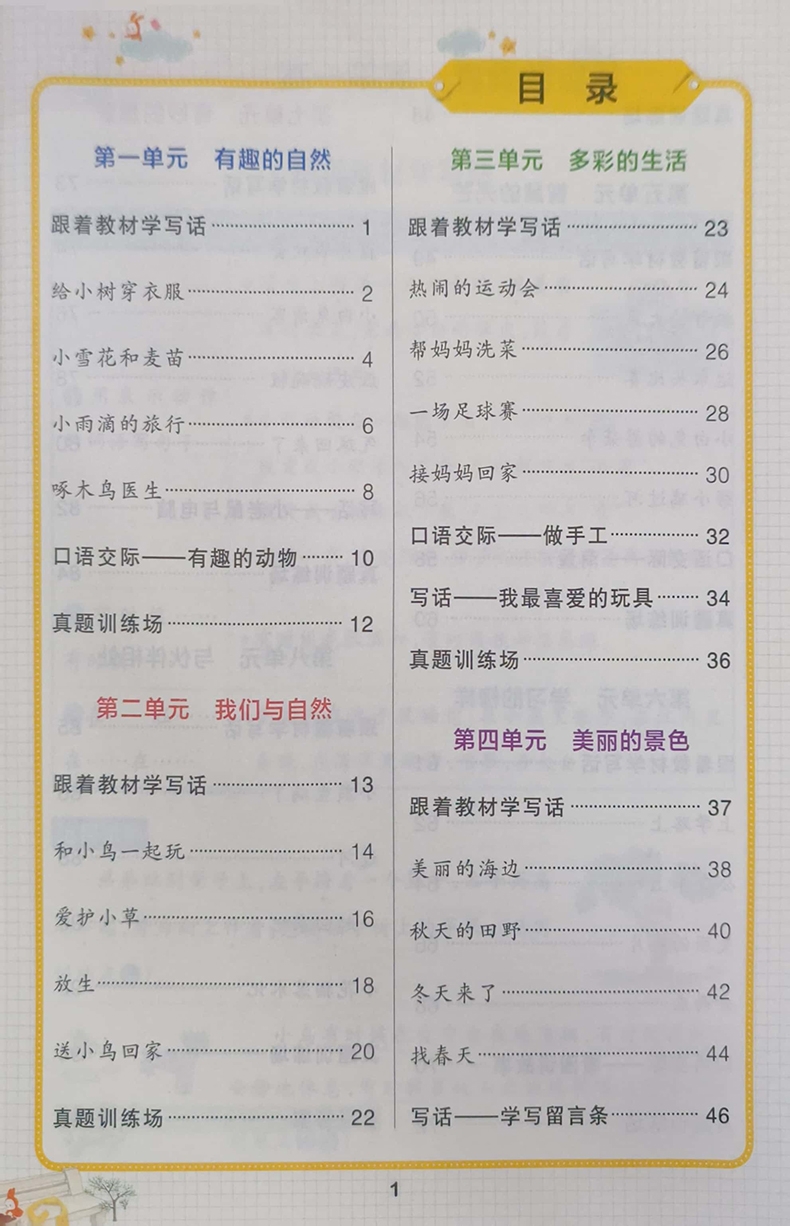 目 录
第一单元 有趣的自然
跟着教材学写话 1
给小树穿衣服 2
小雪花和麦苗 4
小雨滴的旅行 6
啄木鸟医生 8
口语交际——有趣的动物 10
真题训练场 12
第二单元 我们与自然
跟着教材学写话 13
和小鸟一起玩 14
爱护小草 16
放生 18
送小鸟回家 20
真题训练场 22
第三单元 多彩的生活
跟着教材学写话 23
热闹的运动会 24
帮妈妈洗菜 26
一场足球赛 28
接妈妈回家 30
口语交际——做手工 32
写话——我最喜爱的玩具 34
真题训练场 36
第四单元 美丽的景色
跟着教材学写话 37
美丽的海边 38
秋天的田野 40
冬天来了 42
找春天 44
写话——学写留言条 46
1